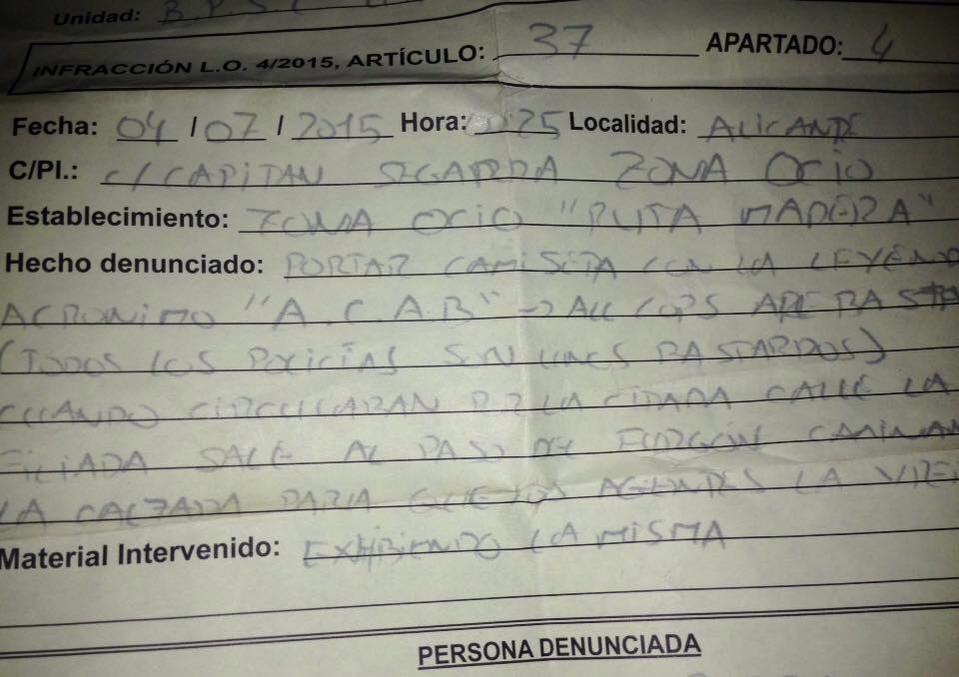 Unidad: B.P.S.C
INFRACCIÓN L.O. 4/2015, ARTÍCULO: 37 APARTADO: 4
Fecha: 04 / 07 / 2015 Hora: 25 Localidad: ALICANTE
C/Pl.: C/ CAPITAN SEGARRA ZONA OCIO
Establecimiento: ZONA OCIO "PUTA MADRRA"
Hecho denunciado: PORTAR CAMISETA CON LA LEYEND
ACRONIMO "A.C.A.B" → ALL COPS ARE BASTA
(TODOS LOS POLICÍAS SON UNOS BASTARDOS)
CUANDO CIRCULABAN POR LA CITADA CALLE LA
FILIADA SALE AL PASO DEL FURGÓN CAMINAN
LA CALZADA PARA QUE LOS AGENTES LA VIE
Material Intervenido: EXHIBIENDO LA MISMA
PERSONA DENUNCIADA